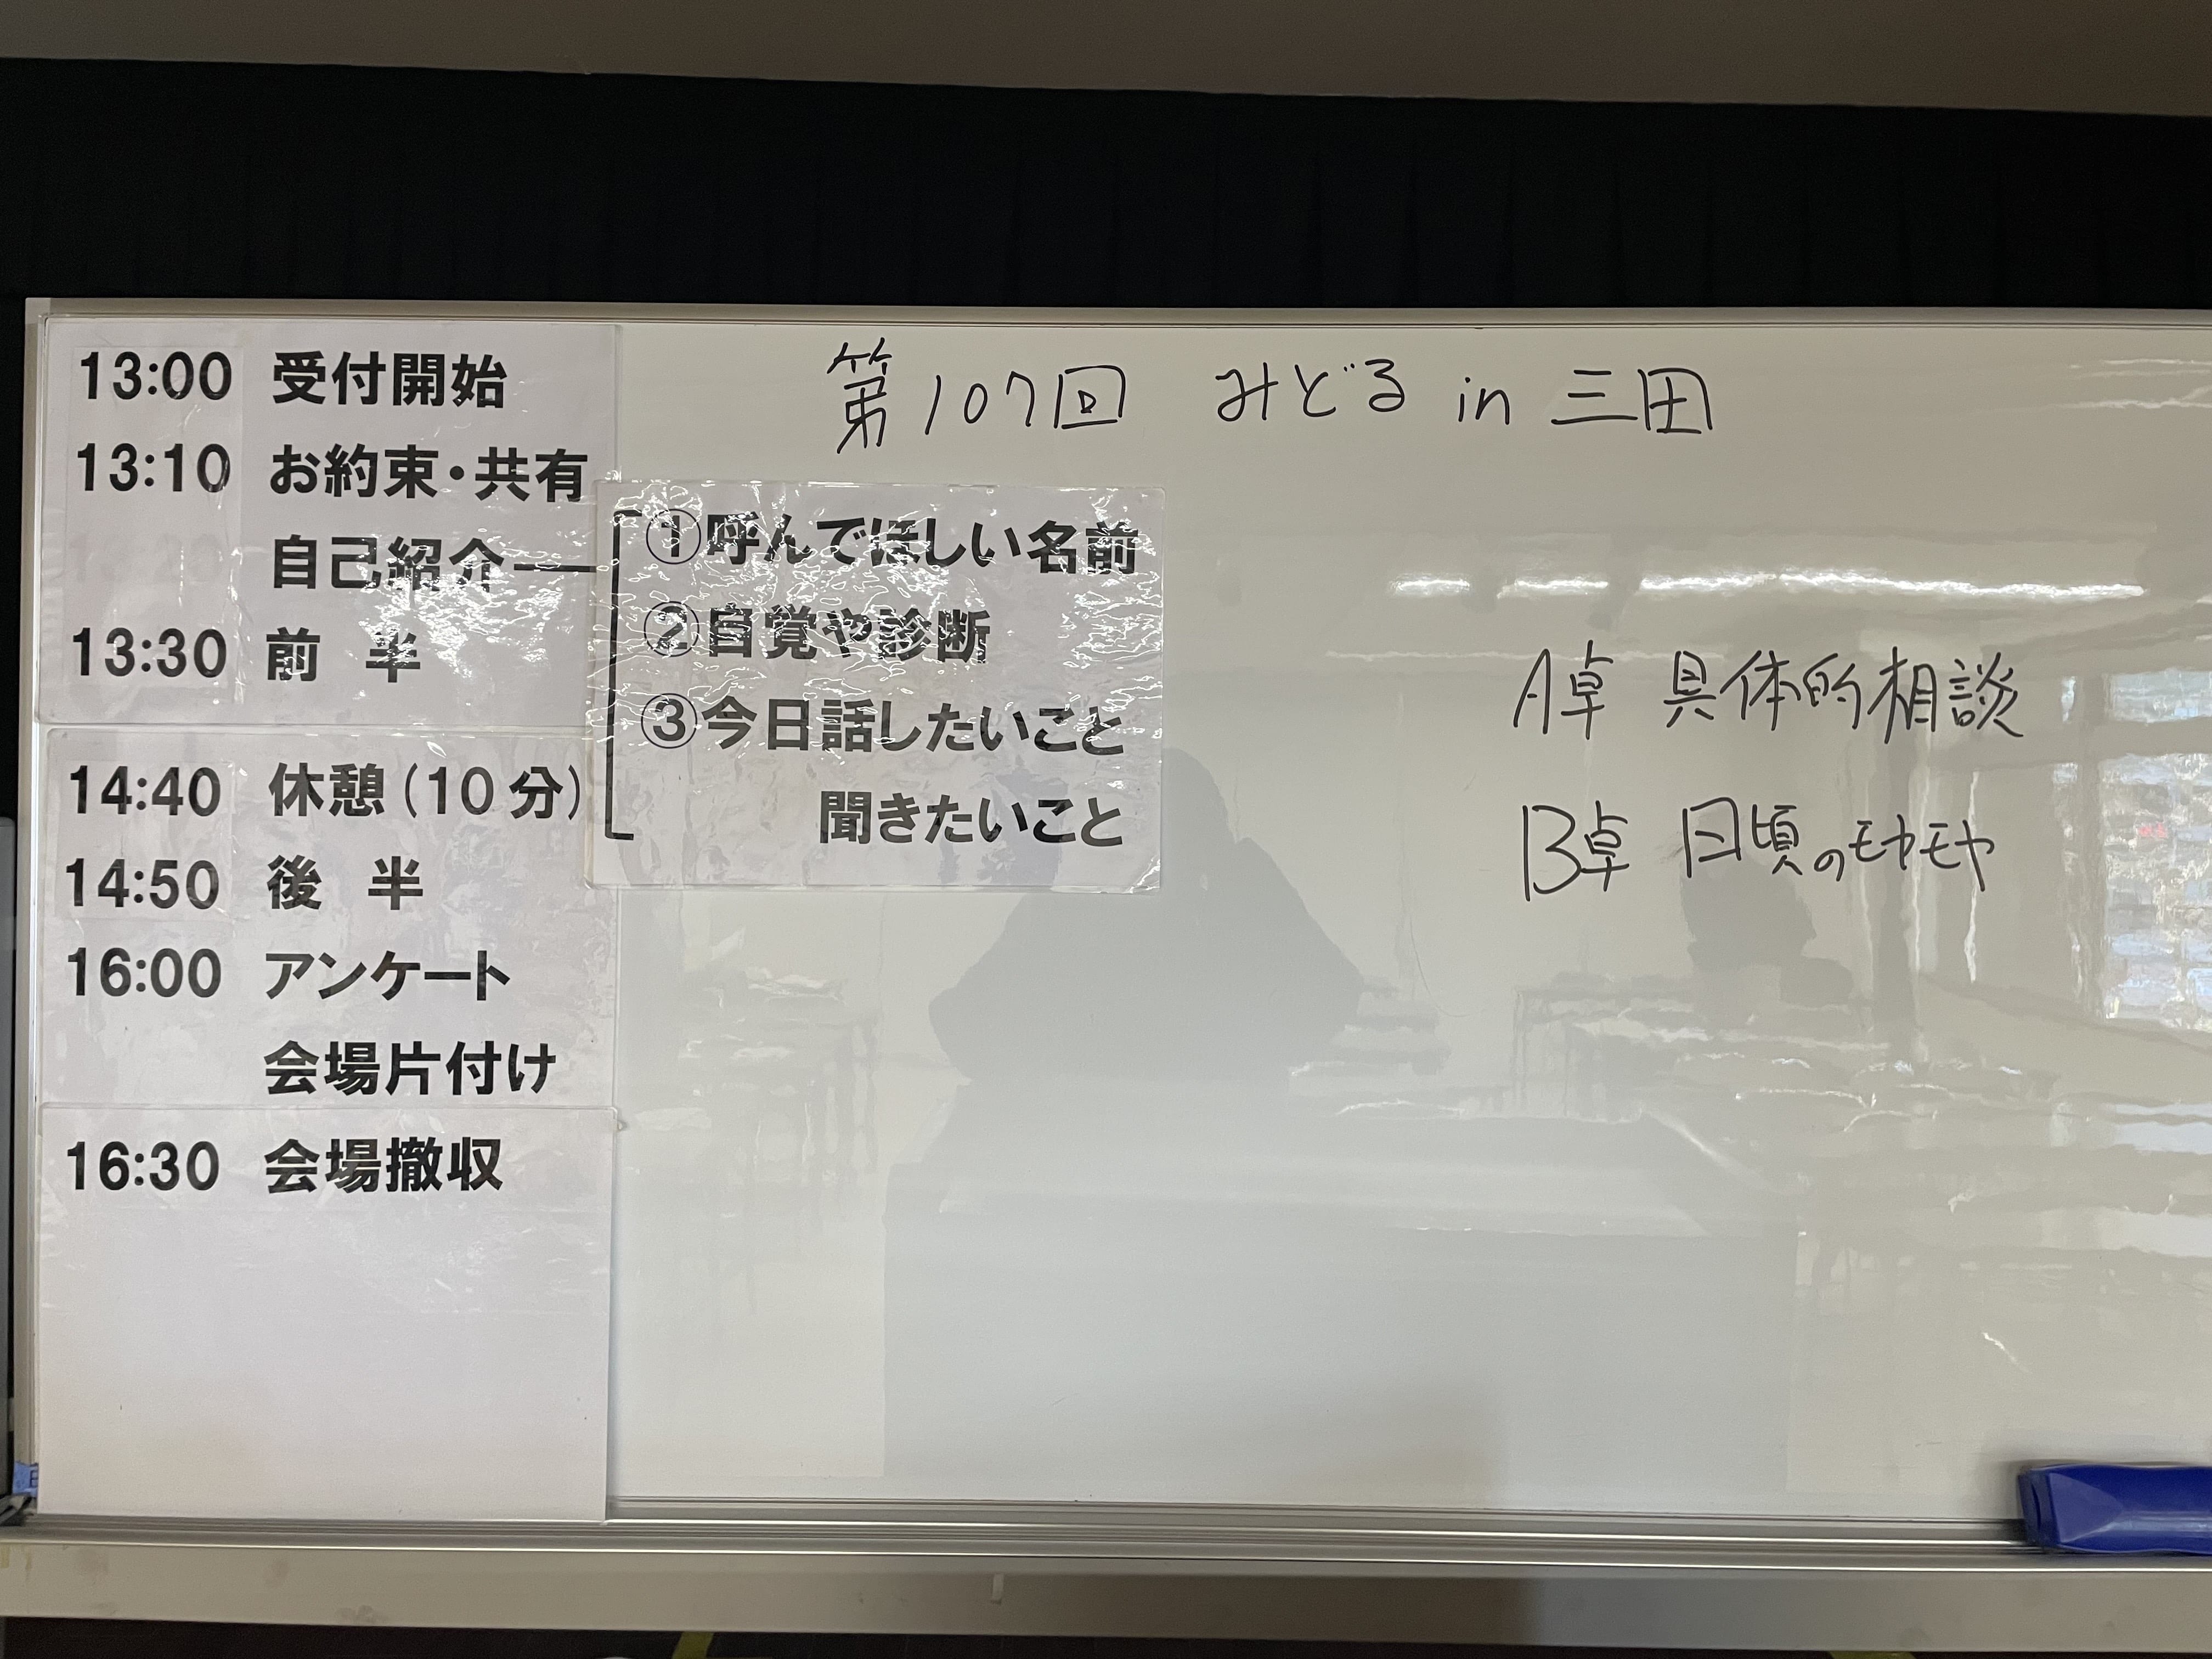 第107回 みどる in 三田
13:00 受付開始
13:10 お約束・共有
自己紹介
①呼んでほしい名前
②自覚や診断
③今日話したいこと
聞きたいこと
13:30 前 半
14:40 休憩(10分)
14:50 後 半
16:00 アンケート
会場片付け
16:30 会場撤収
A卓 具体的相談
B卓 日頃のモヤモヤ